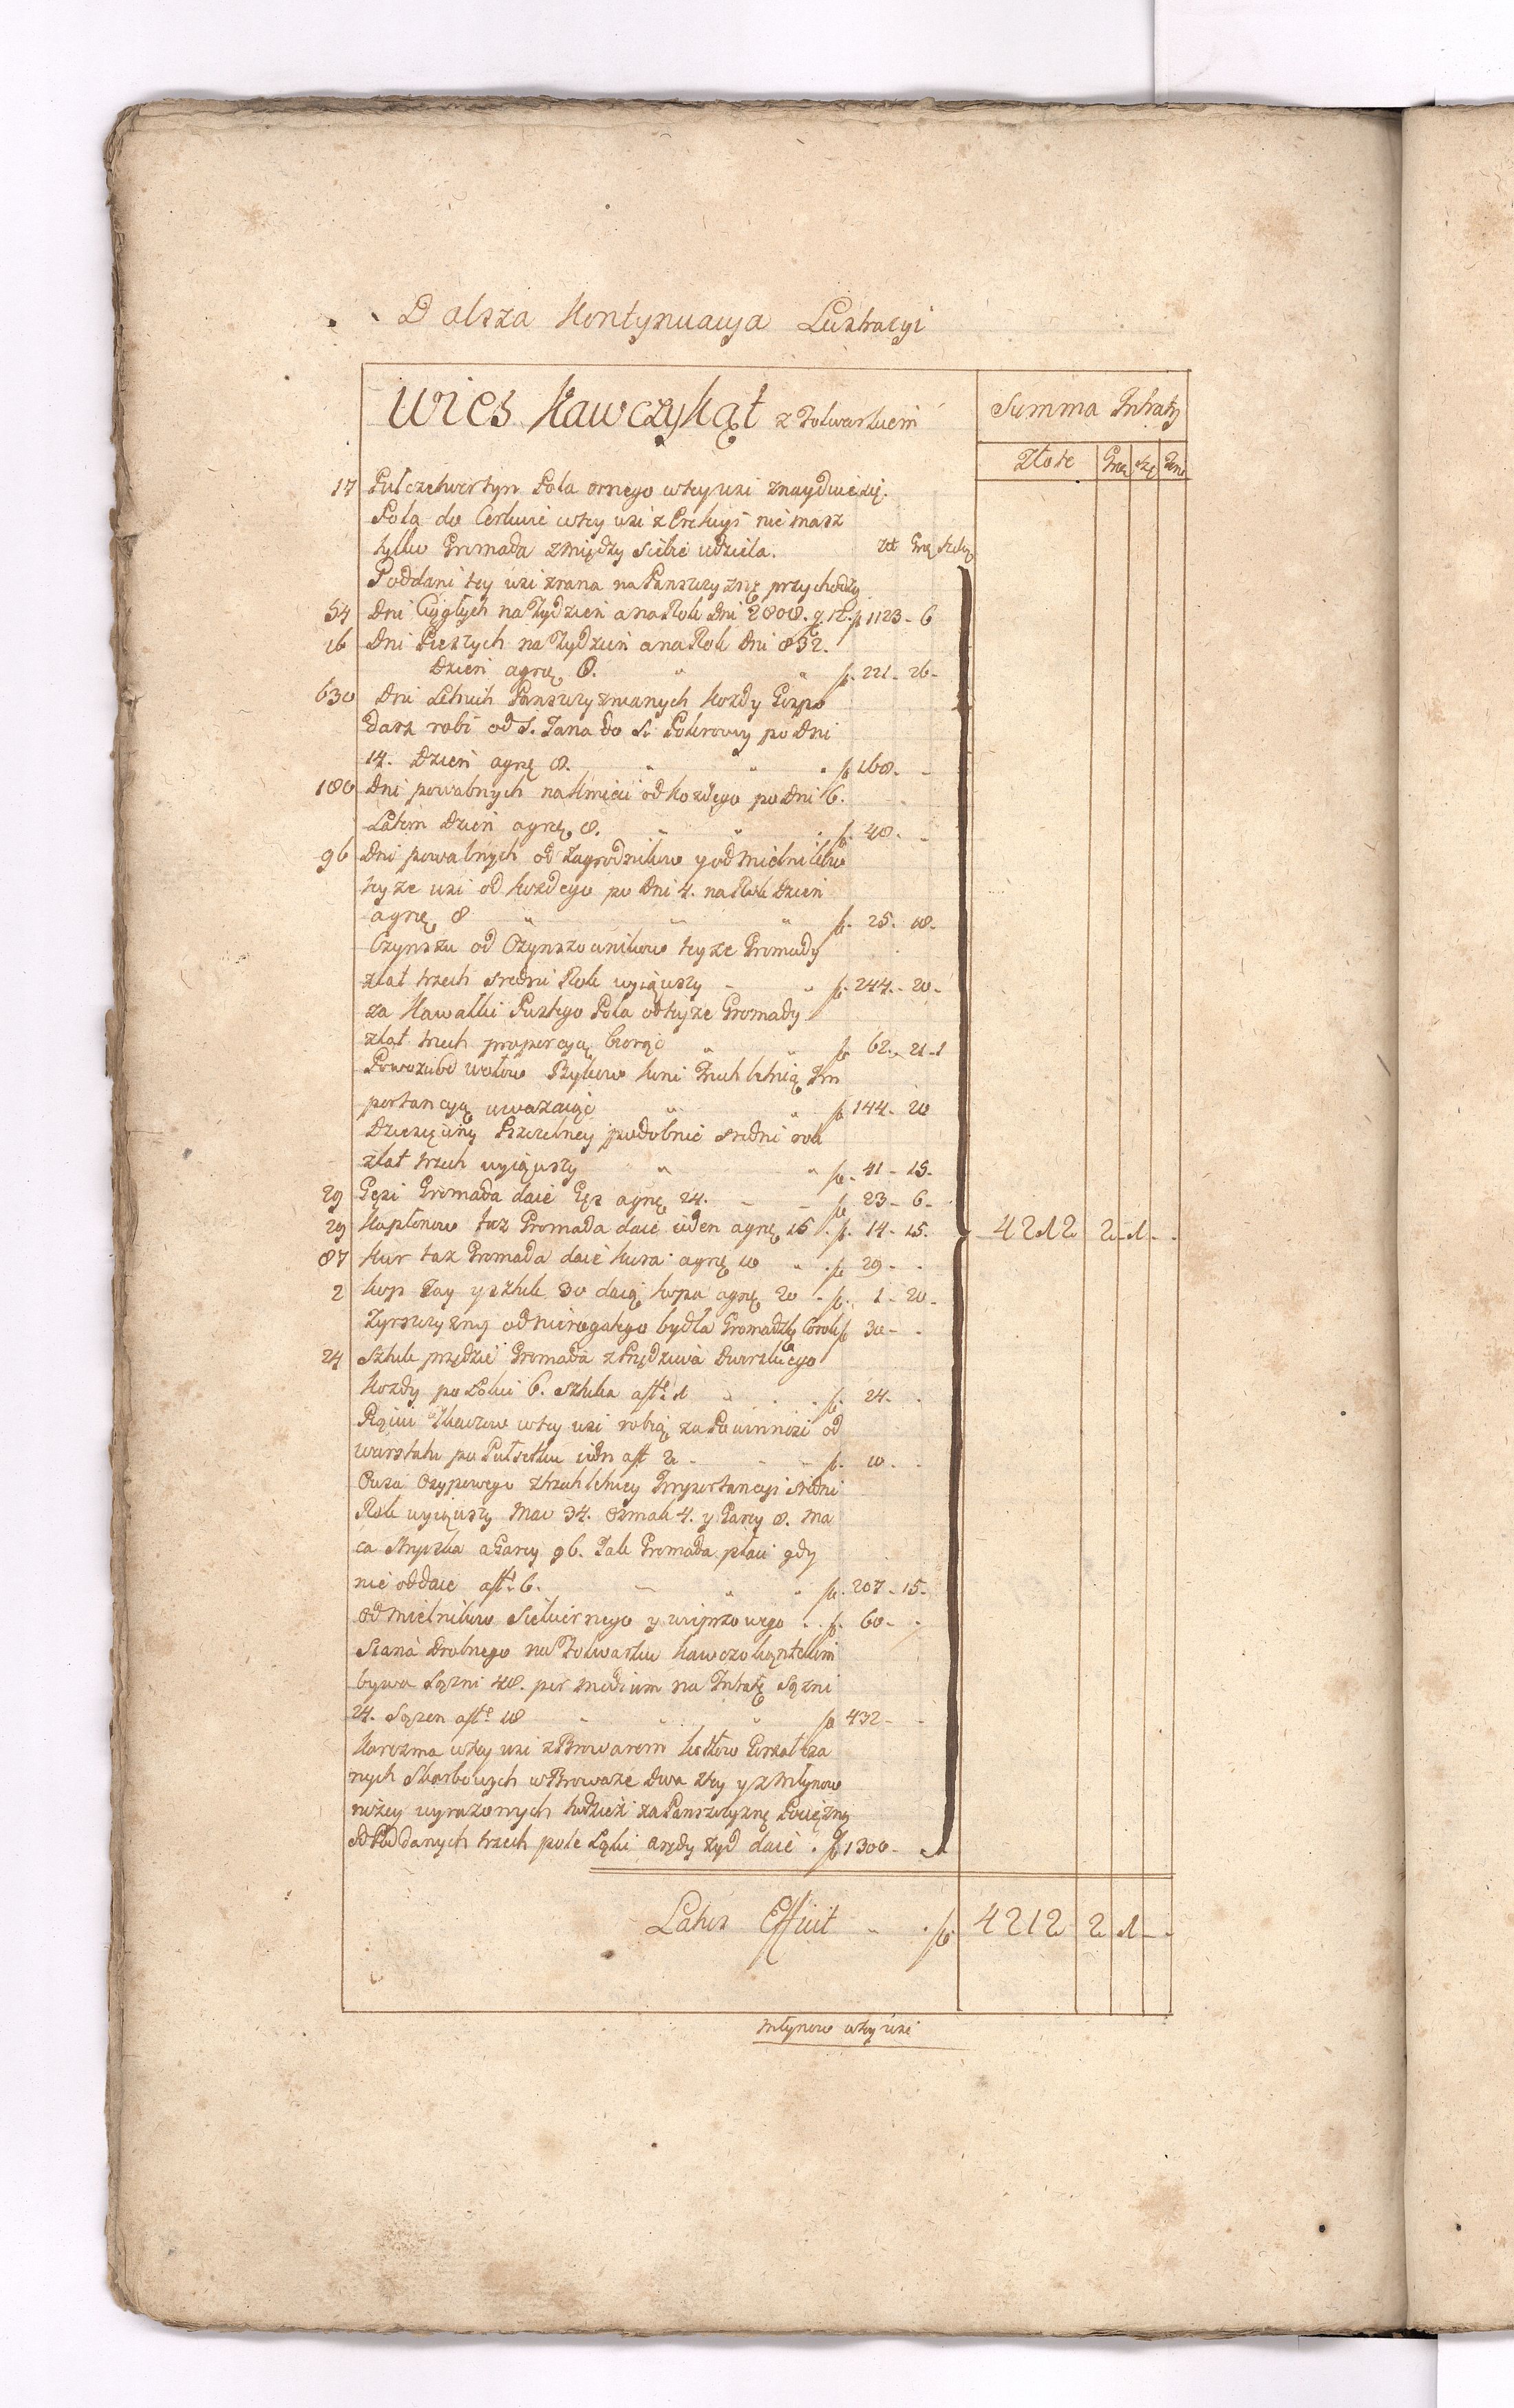 Dalsza Kontynuacya Lustracyi
Wies Kawczykąt z Folwarkiem
Summa Intraty
Złote Gro: szę: Deni
17 Pułczetwertyn Pola ornego wtey wsi znayduie się.
Pola do Cerkwie wtey wsi z Erekcyi nie masz
tylko Gromada zmiędzy siebie udziela. Zł Gro Szeląg
Poddani tey wsi zrana na Panszczyznę przychodzą
54 Dni Ciągłych na Tydzień a na Rok Dni 2808. g. 12. f 1123 - 6
16 Dni Pieszych na Tydzień a na Rok Dni 832.
Dzień a gro 8. " " f. 221 - 26 -
630 Dni Letnich Panszczyznianych kożdy Gospo
darz robi od S. Jana do S. Pokrowy po Dni
14. Dzień a gro 8. " " " f 168. -
180 Dni powabnych na kmieci od kożdego po Dni 6.
Latem Dzień a gro 8. " " . f. 48. -
96 Dni powabnych od Zagrodnikow y od Mielnikow
teyze wsi od kożdego po Dni 4. na Rok Dzień
a gro 8 " " " f. 25. 18.
Czynszu od Czynszownikow teyże Gromady
z lat trzech sredni Rok wyiąwszy - " f. 244. - 20 -
za Kawałki Pustego Pola od teyże Gromady
z lat trzech proporcyą biorąc " " f. 62. - 21 - 1
wołow Bykow koni Trzech letnią Im
portancyą uważaiąc " " f 144. 20
Dziesięciny Pszczelney podobnie sredni rok
z lat trzech wyiąwszy " " f. 41 - 15 -
29 Gęsi Gromada daie Gęś a gro 24. - - f. 23 - 6 -
29 Kapłonow taż Gromada daie ieden a gro 15 . f. 14 - 15. 4212 2 - 1 - -
87 Kur taż Gromada daie kura a gro 10 " . f 29 - -
2 kop Jay y sztuk 30 daią kopa a gro 20 . f. 1 - 20 -
Zyrszczyzny od nierogatego bydła Gromadzkiego f 30 - -
24 Sztuk przędzie Gromada z Przędziwa Dworskiego
kożdy po łokci 6. sztuka a f. 1 " . . f. 24. -
Pięciu Tkaczow wtey wsi robią za Powinności od
warsztatu po Pułsetku ieden a f 2 - - - f. 10. -
Owsa Osypowego z trzech letniey Importancyi sredni
Rok wyiąwszy Mac 34. Osmak 4. y Garcy 8. Ma
ca a Garcy 96. Jak Gromada płaci gdy
nie oddaie a f. 6. - " " f. 207 - 15 -
Od Mielnikow y wieprzowego . . f. 60 - -
Siana Drobnego na Folwarku Kawczokąntckim
bywa Sązni 48. per medium na Intratę Sązni
24. Sążen a f. 18 " " " f 432 - -
Karczma wtey wsi z Browarem kotłow Gorzałcza
nych Skarbowych w Browarze dwa trzy y z Młynow
niżey wyrażonych tudzież za Panszczyznę Pociężną
od Poddanych trzech pole Łąki arędy żyd daie . f 1300 -
Latus Efficit " . f 4212 2 1 - -
Młynow wtey wsi